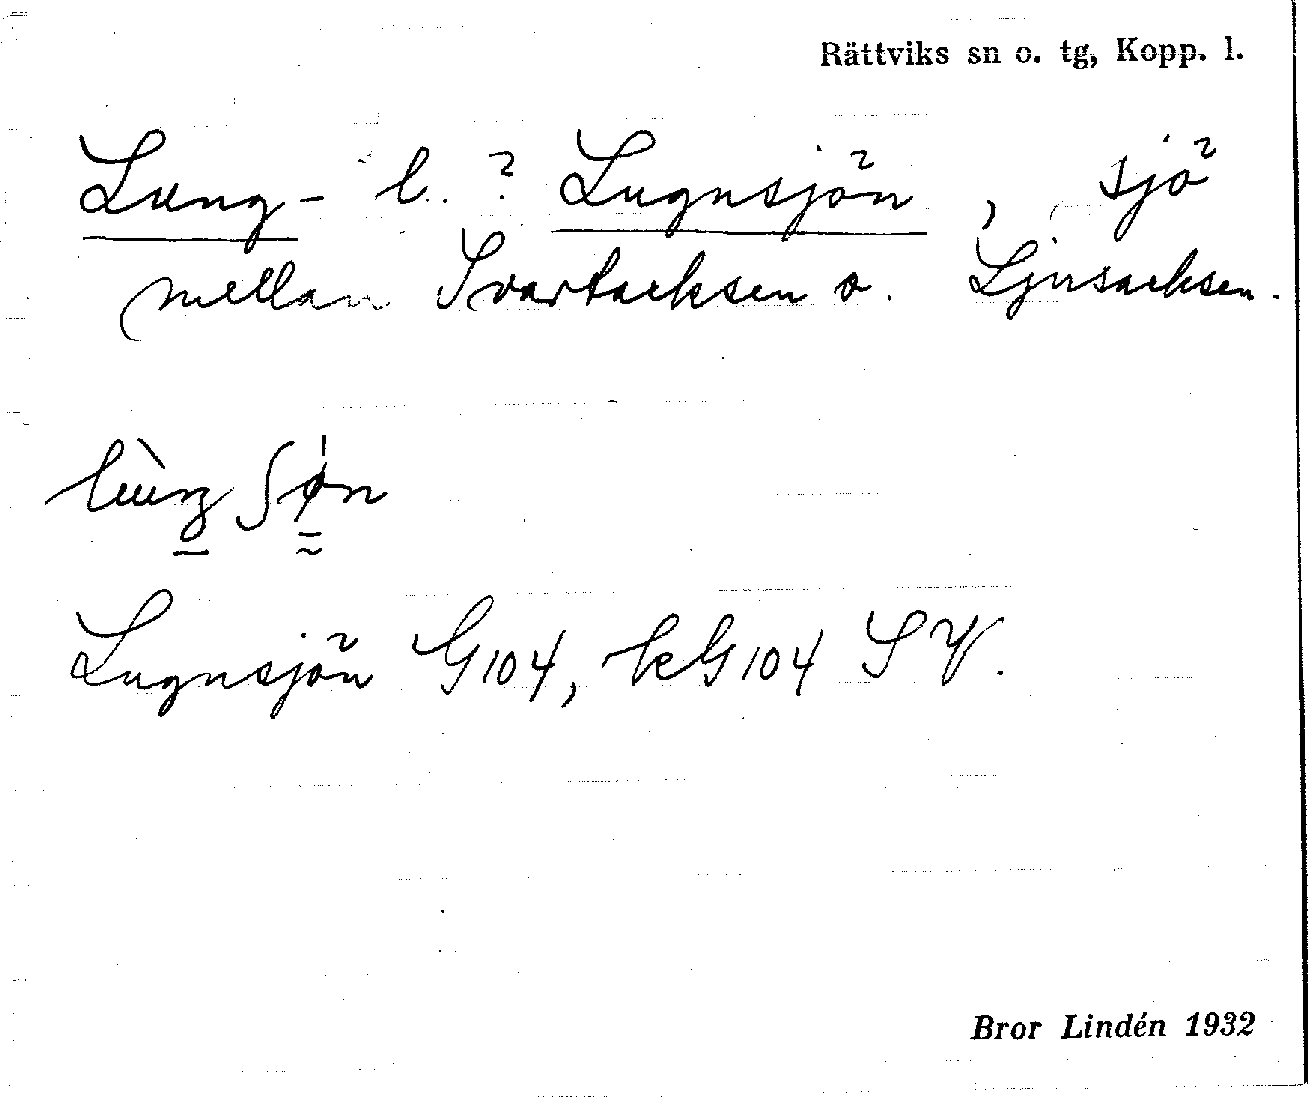 Rättviks sn o. tg, Kopp. l.
Lung- l. ? Lugnsjön, sjö
mellan Svartacksen o. Ljusacksen.
Lugnsjön G104, kG104 SV.
Bror Lindén 1932